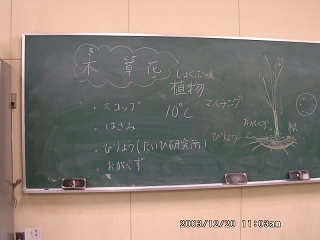 き
木 草 花
しょくぶつ
植物
10℃
・スコップ
・はさみ
・ひりょう(たいひ研究所)
・おがくず
マルチング
おがくず
根
ひりょう
2003/12/20 11:03am